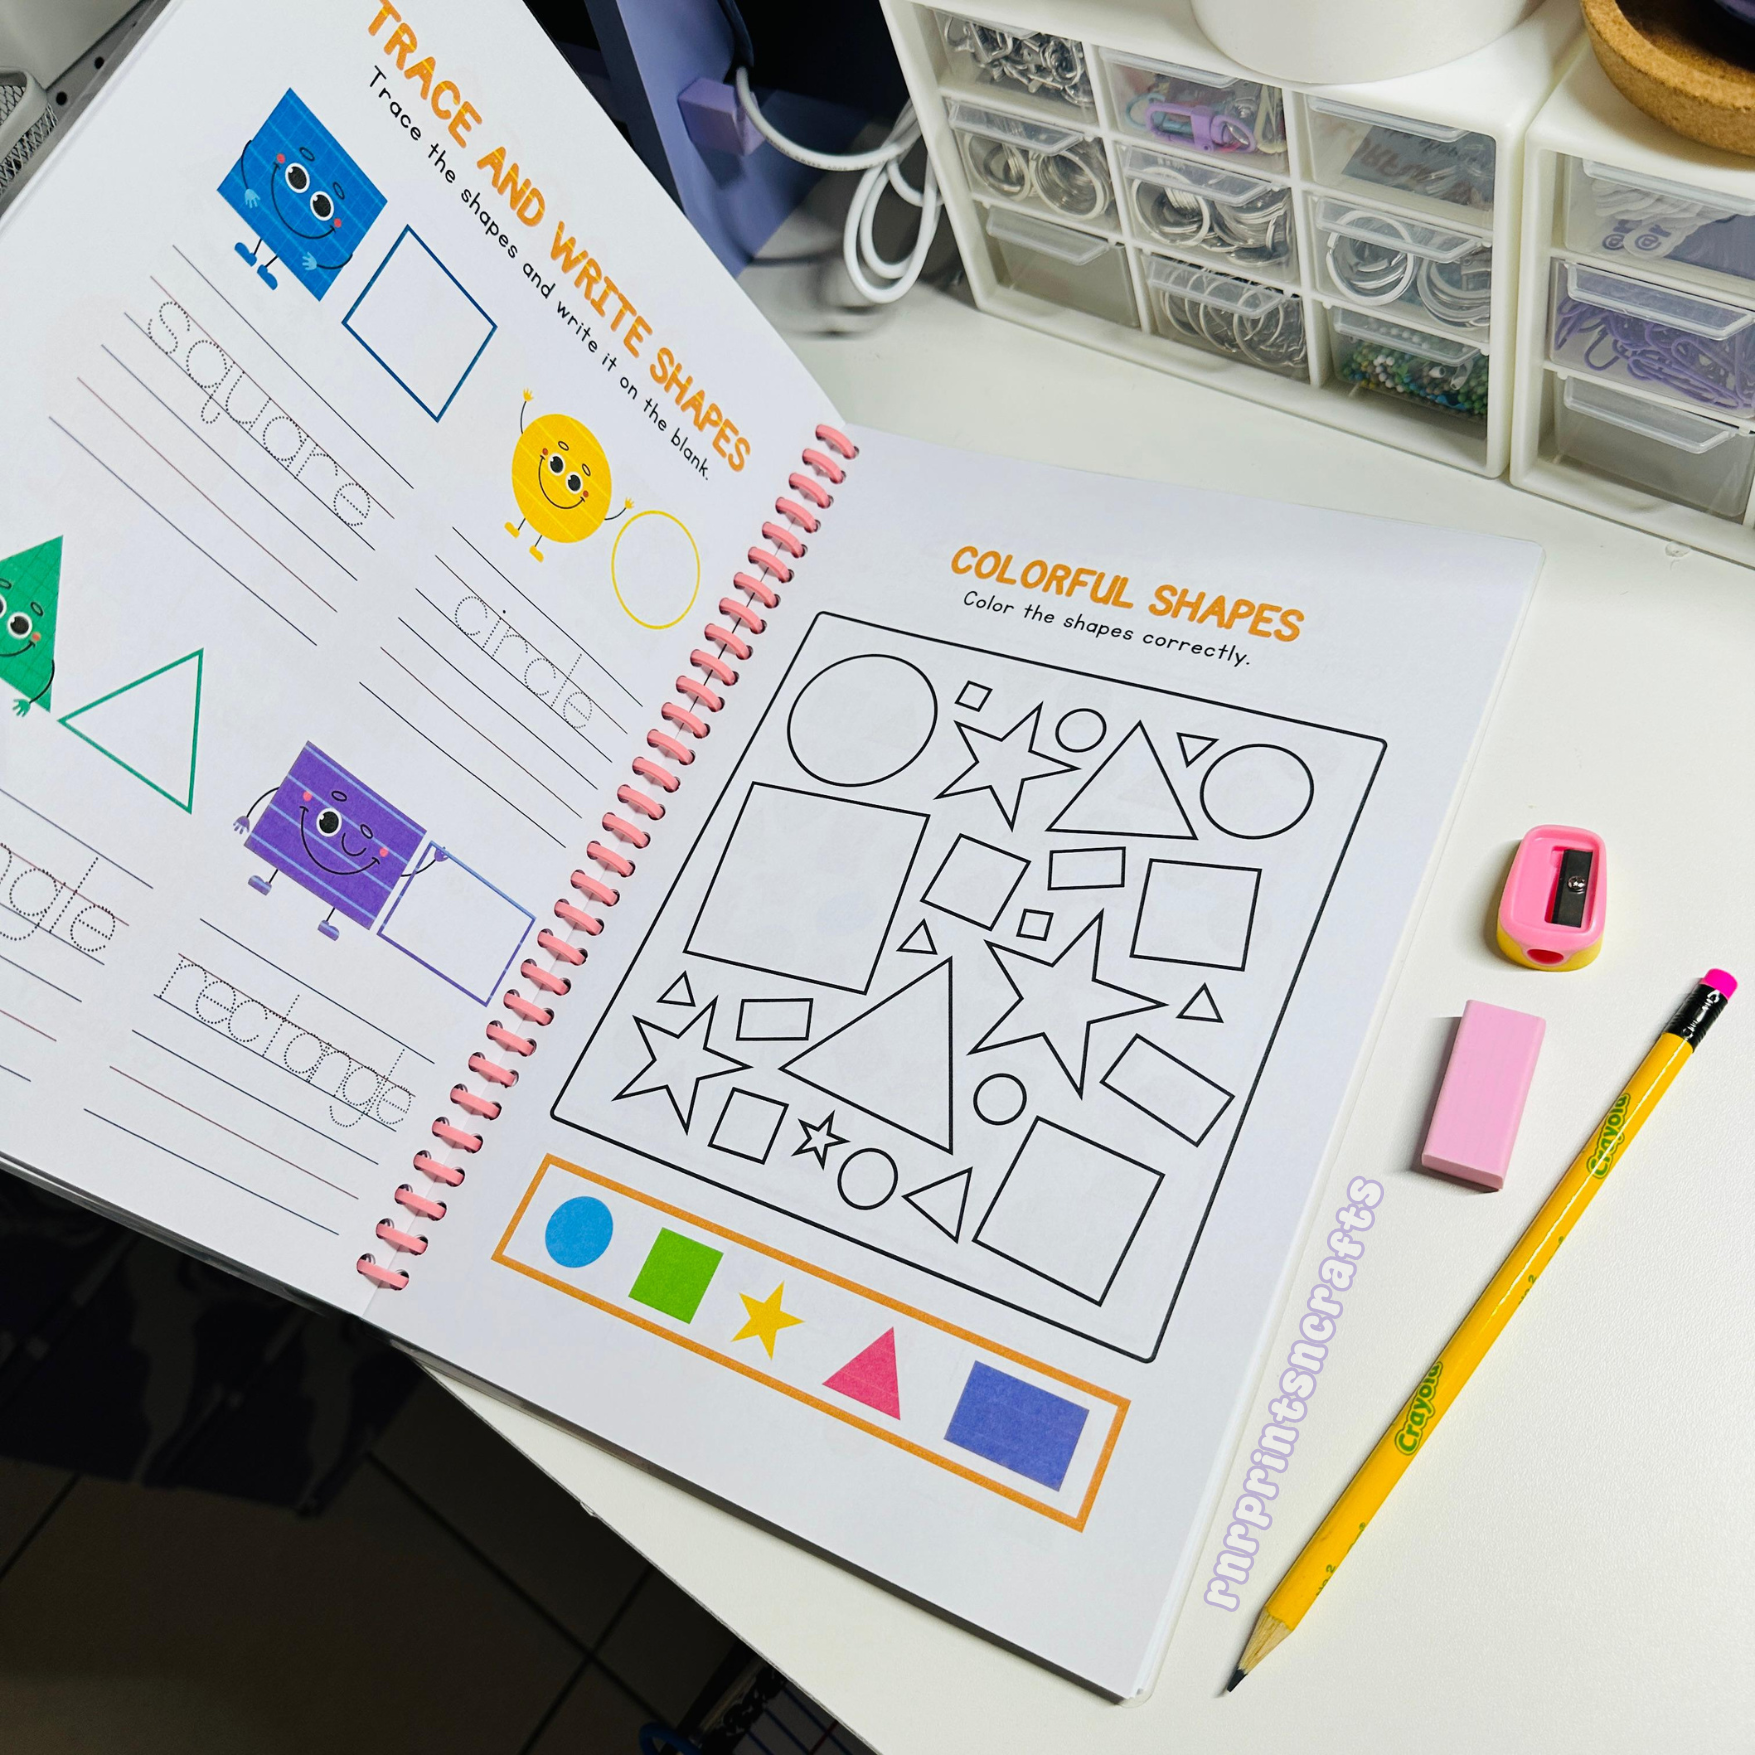 TRACE AND WRITE SHAPES
Trace the shapes and write it on the blank.
square
circle
rectangle
COLORFUL SHAPES
Color the shapes correctly.
Crayola
Crayola
No. 2
rnrprintsncrafts